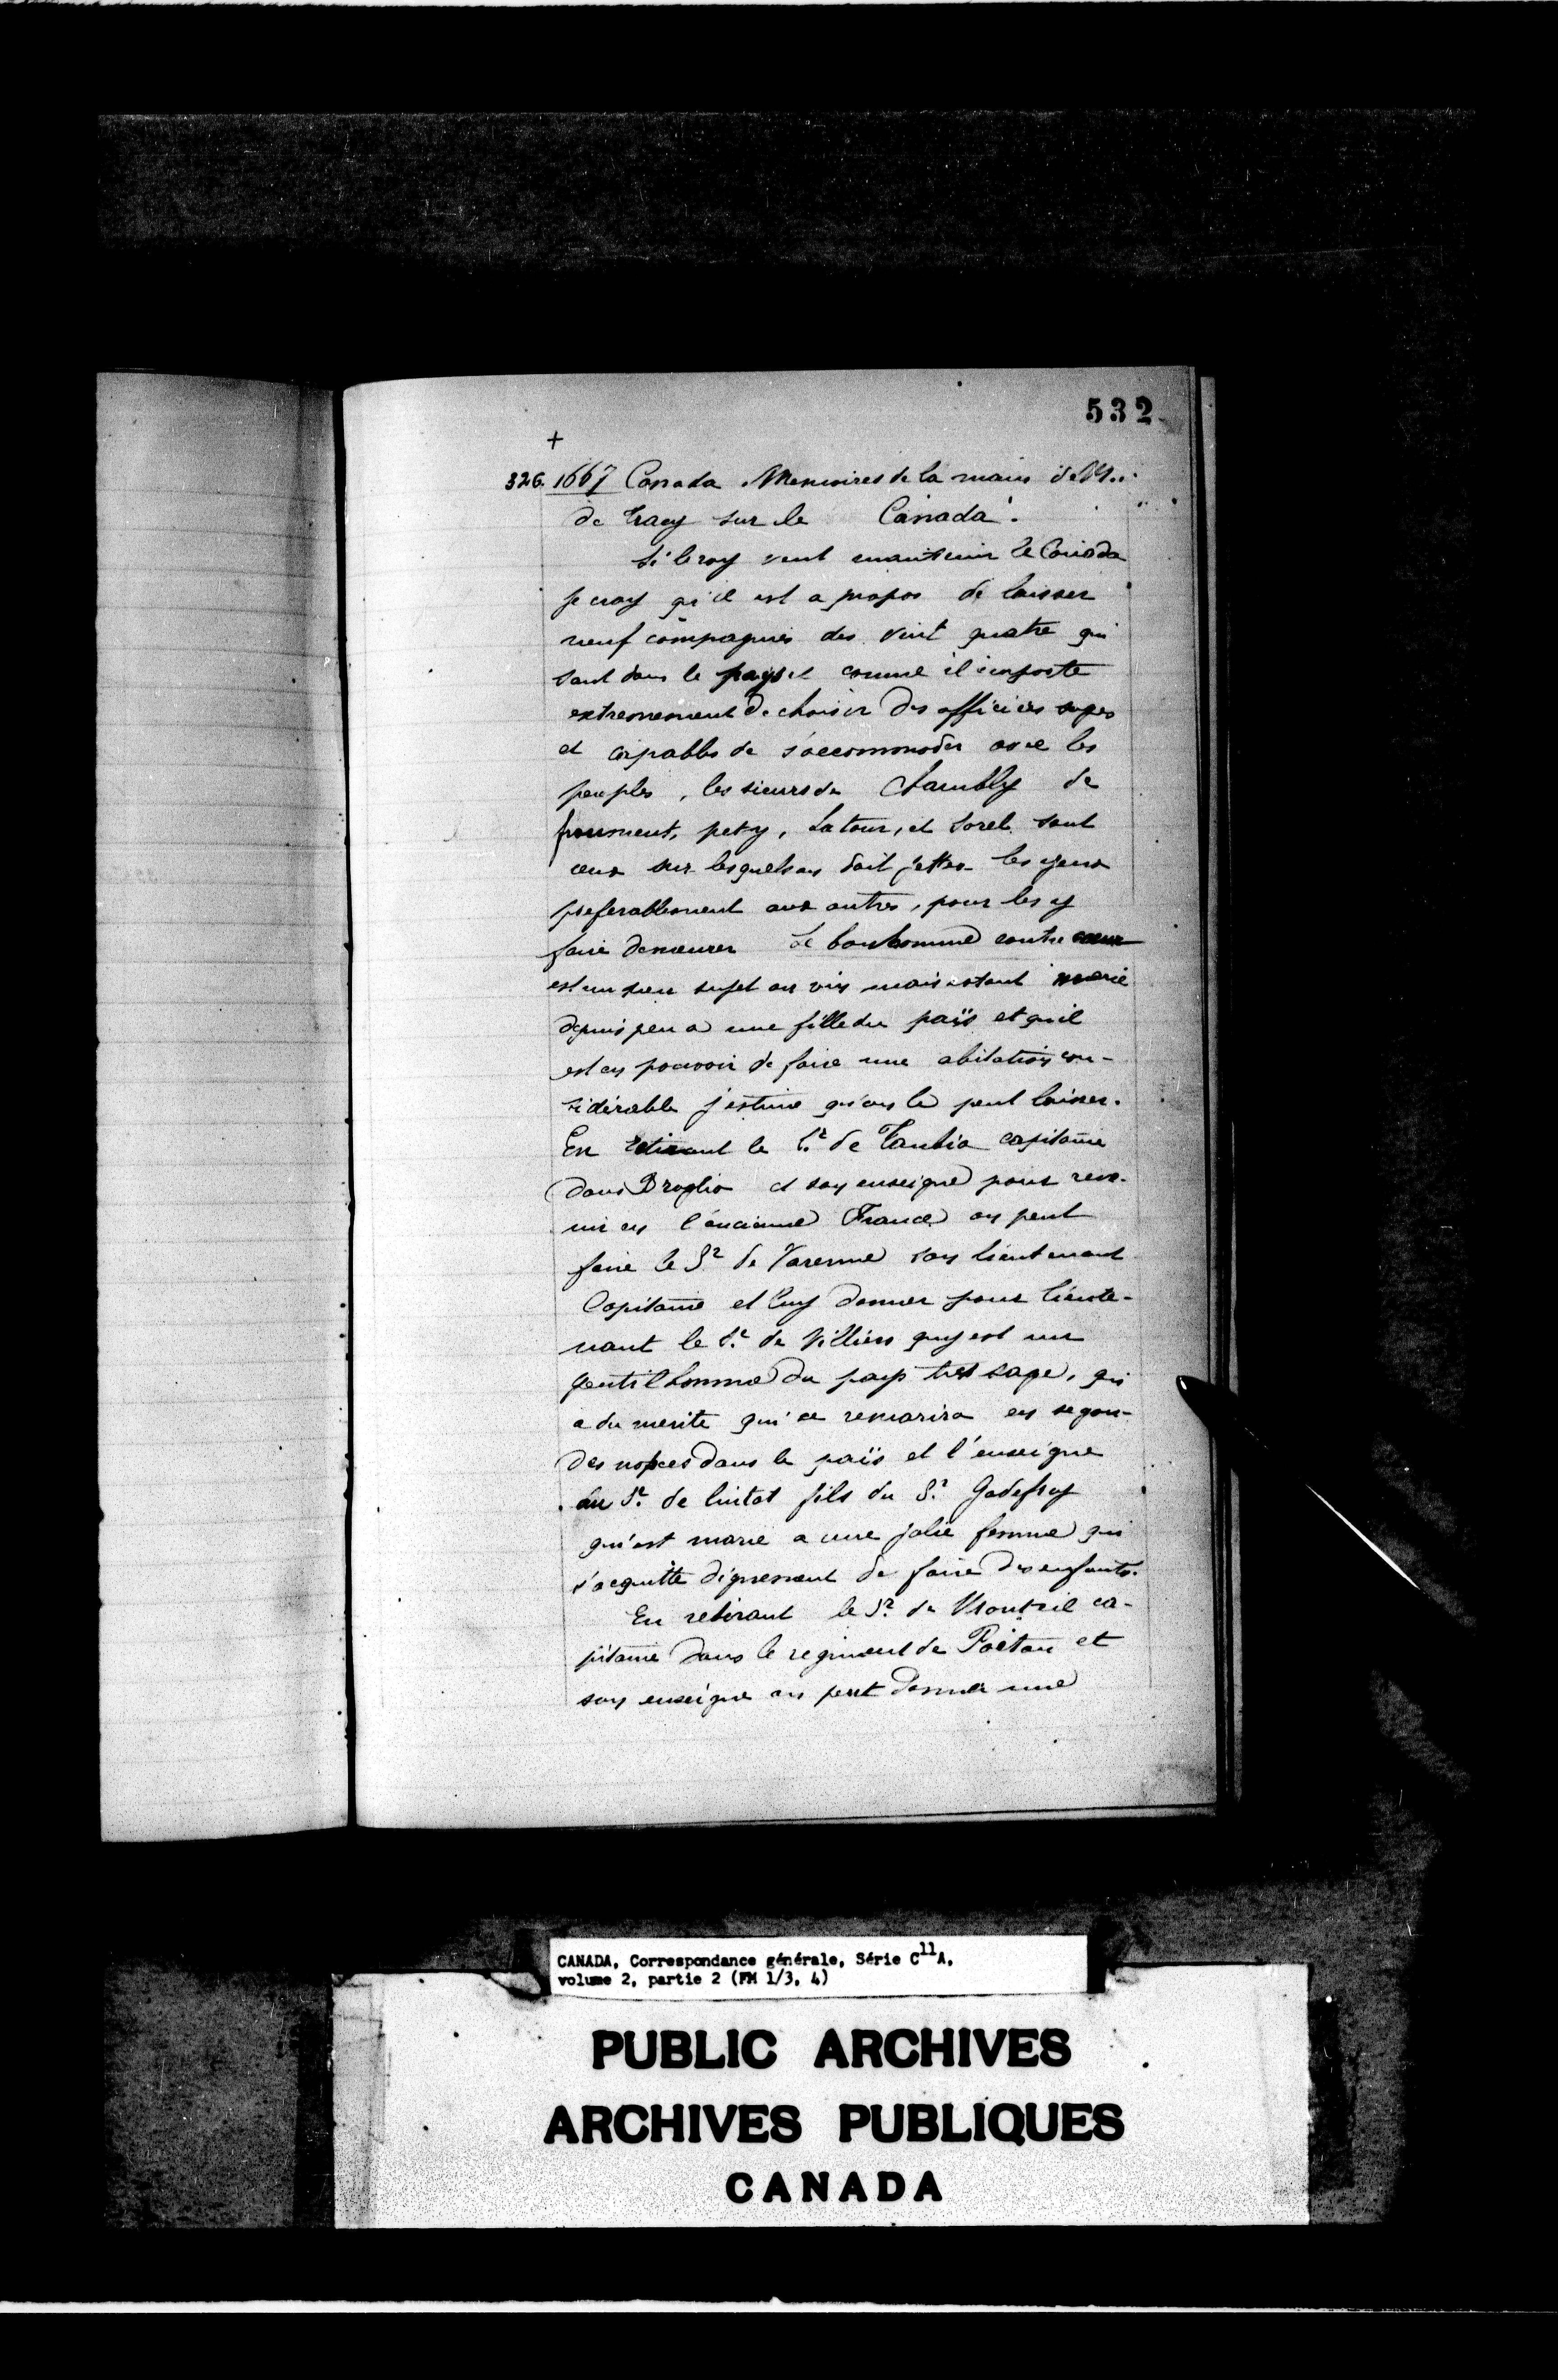 532
+
326. 1667 Canada. Memoires de la main de M.
de Tracy sur le Canada.
Si le roy veut maintenir le Canada
je croy qu'il est a propos de laisser
neuf compagnies des vint quatre qui
sont dans le pays et comme il importe
extremement de choisir des officiers sages
et capables de s'accommoder avec les
peuples, les sieurs de Chambly de
froment, pety, Latour, et Sorel sont
ceux sur lesquels on doit jetter les yeux
preferablement aux autres, pour les y
faire demeurer Le bonhomme contre coeur
est un sujet on mais estant marié
depuis peu a une fille du païs et qu'il
est en pouvoir de faire une abitation con-
sidérable j'estime qu'on le peut laisser.
En retirant le Sr. de capitaine
dans Broglio et son enseigne pour reve-
nir en l'ancienne France on peut
faire le Sr de Varenne son lieutenant
Capitaine et luy donner pour lieute-
nant le Sr. de Villiers quy est un
gentilhomme du pays tres sage, qui
a du merite qui ce remarira en segon-
des nopces dans le païs et l'enseigne
au Sr. de lintot fils du Sr. Godefroy
qui est marie a une jolie femme qui
s'acquitte dignement de faire des enfants.
En retirant le Sr. de Monteil ca-
pitaine dans le regiment de Poitou et
son enseigne on peut donner une
CANADA, Correspondance générale, Série C11A,
volume 2, partie 2 (FM 1/3, 4)
PUBLIC ARCHIVES
ARCHIVES PUBLIQUES
CANADA